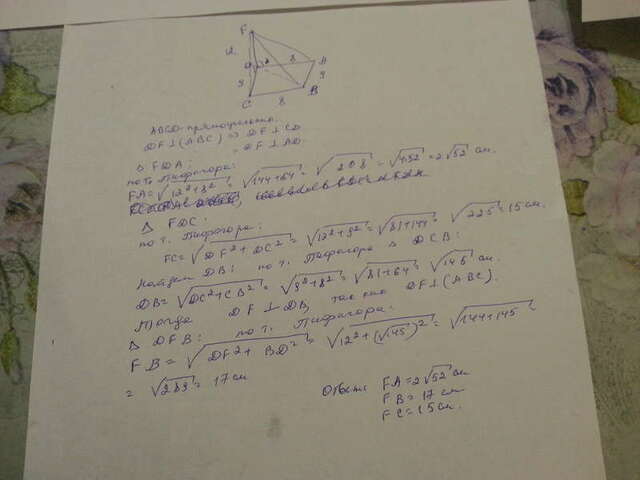 F
12
8
A
9
9
C
8
B
ABCD - прямоугольник.
DF⊥(ABC) ⇒ DF⊥CD
DF⊥AD
Δ FDA:
по т. Пифагора:
FA = √12²+8² = √144+64 = √208 = = 2√52 см.
Δ FDC:
по т. Пифагора:
FC = √DF²+DC² = √12²+9² = √81+144 = √225 = 15 см.
Найдем DB: по т. Пифагора Δ DCB:
DB = √DC²+CB² = √9²+8² = √81+64 = √145 см.
Тогда DF⊥DB, так как DF⊥(ABC).
Δ DFB: по т. Пифагора:
FB = √DF²+BD² = √12²+(√145)² = √144+145 =
= √289 = 17 см
Ответ: FA = 2√52 см
FB = 17 см
FC = 15 см.